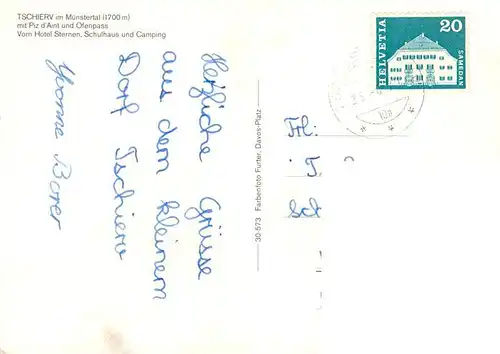 TSCHIERV im Münstertal (1700 m)
mit Piz d'Aint und Ofenpass
Vom Hotel Sternen, Schulhaus und Camping
Herzliche Grüsse
aus dem kleinem
Dorf Tschierv
Yvonne Borer
30-573 Farbenfoto Furter, Davos-Platz
HELVETIA
20
SAMEDAN
Frl: